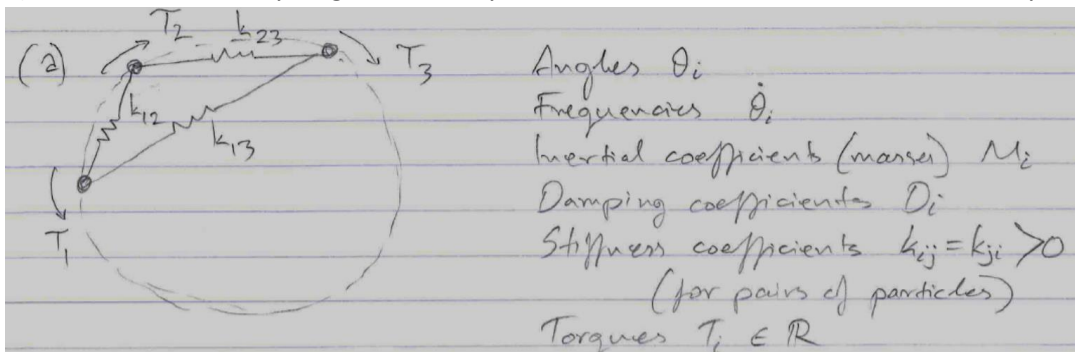 (a)
T₂
k₂₃
T₃
k₁₂
k₁₃
T₁
Angles θᵢ
Frequencies θ̇ᵢ
Inertial coefficients (masses) Mᵢ
Damping coefficients Dᵢ
Stiffness coefficients kᵢⱼ = kⱼᵢ > 0
(for pairs of particles)
Torques Tᵢ ∈ ℝ